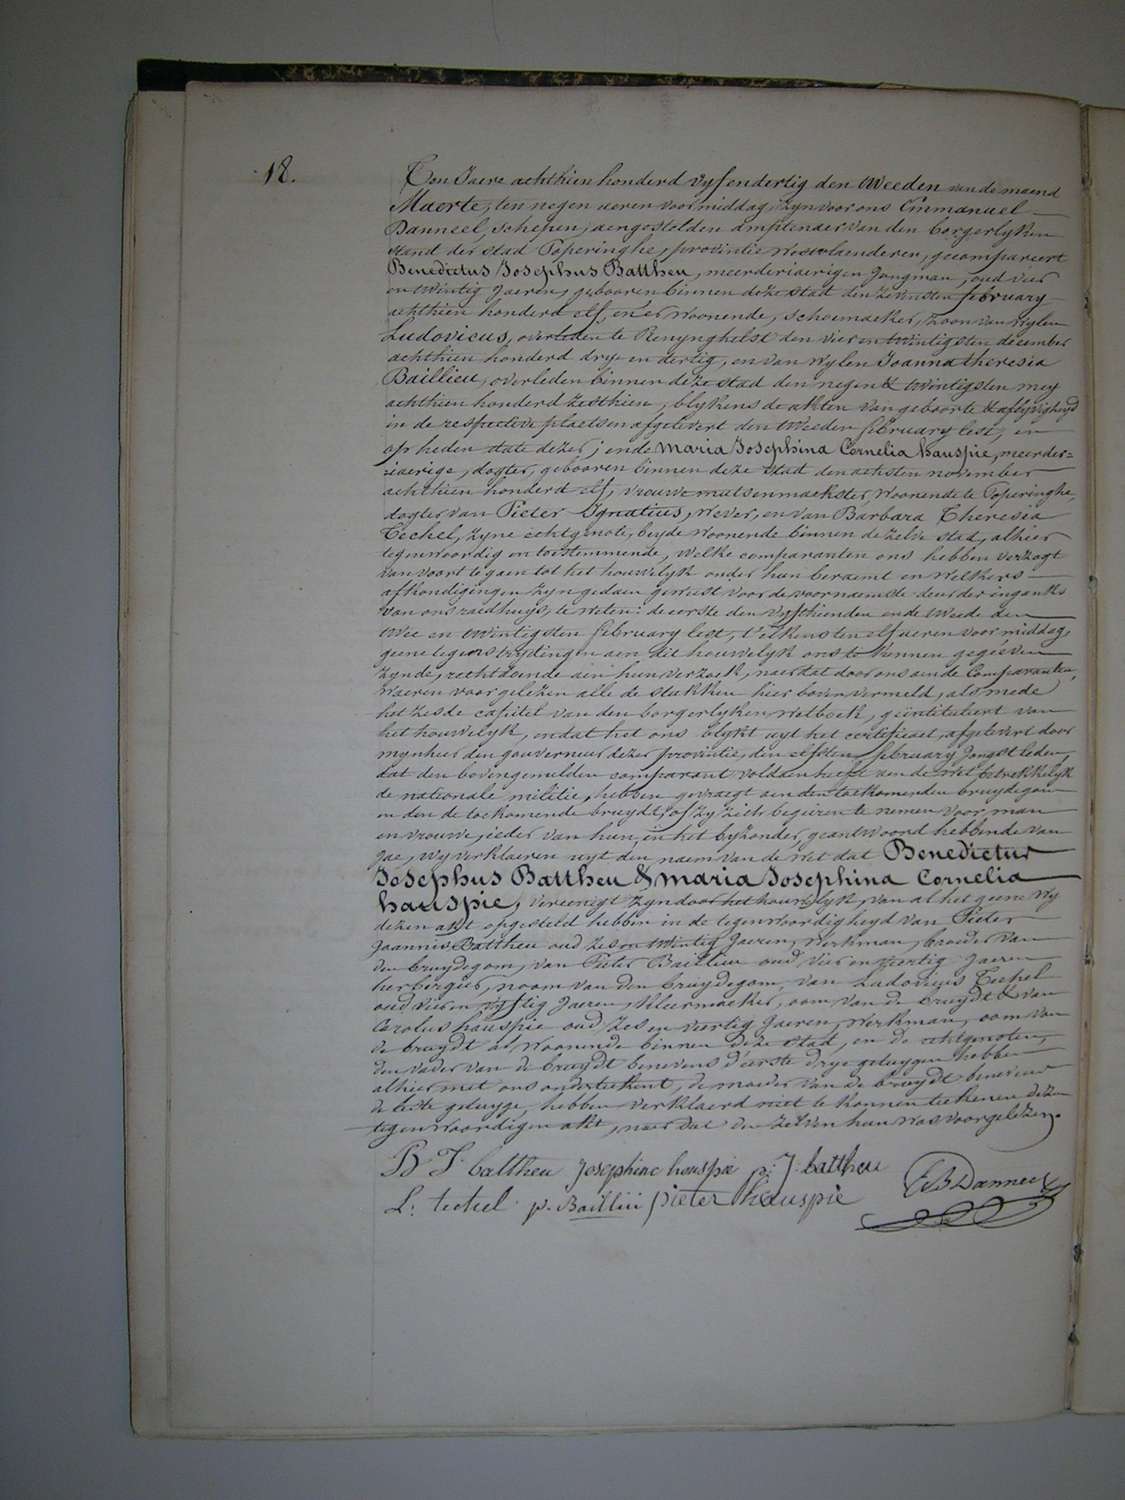 18.
Ten Jaere achthien honderd vyfendertig den tweeden van de maend
Maerte, ten negen ueren voormiddag, zyn voor ons Emmanuel
Danneel, schepen, aengestelden amptenaer van den borgerlyken
stand der stad Poperinghe, provintie Westvlaenderen, gecompareert
Benedictus Josephus Battheu, meerderjaerigen Jongman, oud vier
en twintig Jaeren, gebooren binnen deze stad den zevensten february
achthien honderd elf, en er woonende, schoemaeker, zoon van wylen
Ludovicus, overleden te Renynghelst den vier en twintigsten december
achthien honderd drye en dertig, en van wylen Joanna theresia
Baillieu, overleden binnen deze stad den negen & twintigsten mey
achthien honderd zesthien, blykens de akten van geboorte & aflyvigheyd
in de respective plaetsen afgelevert den tweeden february lest, en
op heden date dezer; ende Maria Josephina Cornelia hauspie, meerder=
jaerige, dogter, gebooren binnen deze stad den achsten november
achthien honderd elf, vrouwe mutsenmaekster, woonende te Poperinghe,
dogter van Pieter Ignatius, wever, en van Barbara Theresia
Techel, zyne echtgenote, beyde woonende binnen de zelve stad, alhier
tegenwoordig en toestemmende, welke comparanten ons hebben verzogt
van voort te gaen tot het houwelyk onder hun beraemt en welkers
afkondigingen zyn gedaen geweest voor de voornaemste deur der ingank
van ons raedhuys, te weten: de eerste den vyfthienden ende tweede den
twee en twintigsten february lest, telkens ten elf ueren voormiddag,
geene tegenstrydingen aen dit houwelyk ons te kennen gegeven
zynde, rechtdoende aen hun verzoek, naer dat door ons aen de comparanten,
waeren voorgelezen alle de stukken hier boven vermeld, als mede
het zesde capittel van den borgerlyken wetboek, geïntituleert van
het houwelyk, en dat het ons blykt uyt het certificaet, afgelevert door
mynheer den gouverneur dezer provintie, den elfsten february Jongst leden,
dat den bovengemelden comparant voldaen heeft aen de wet betrekkelyk
de nationale militie, hebben gevraegt aen den toekomenden bruydegom
en aen de toekomende bruydt, of zy zich begeeren te nemen voor man
en vrouwe; ieder van hun, in het byzonder, geantwoord hebbende van
Jae, wy verklaeren uyt den naem van de wet dat Benedictus
Josephus Battheu & Maria Josephina Cornelia
hauspie, vereenigt zyn door het houwelyk, van al het geene wy
dezen akt opgesteld hebben in de tegenwoordigheyd van Pieter
Joannes Battheu oud zes en twintig Jaeren, werkman, broeder van
den bruydegom, van Pieter Baillieu oud vier en veertig Jaeren
herbergier, noom van den bruydegom, van Ludovicus Techel
oud vier en vyftig Jaeren, kleermaeker, oom van de bruydt & van
Carolus hauspie oud zes en viertig Jaeren, werkman, oom van
de bruydt al woonende binnen deze stad, en de echtgenoten,
den vader van de bruydt benevens d'eerste drye getuygen hebben
alhier met ons onderteekent, de moeder van de bruydt benevens
de leste getuyge, hebben verklaerd niet te konnen teekenen dezen
tegenwoordigen akt, naer dat den zelven hun was voorgelezen.
B J battheu Josephine hauspie p: J: battheu
L: techel p. Baillieu pieter Hauspie E B Danneel